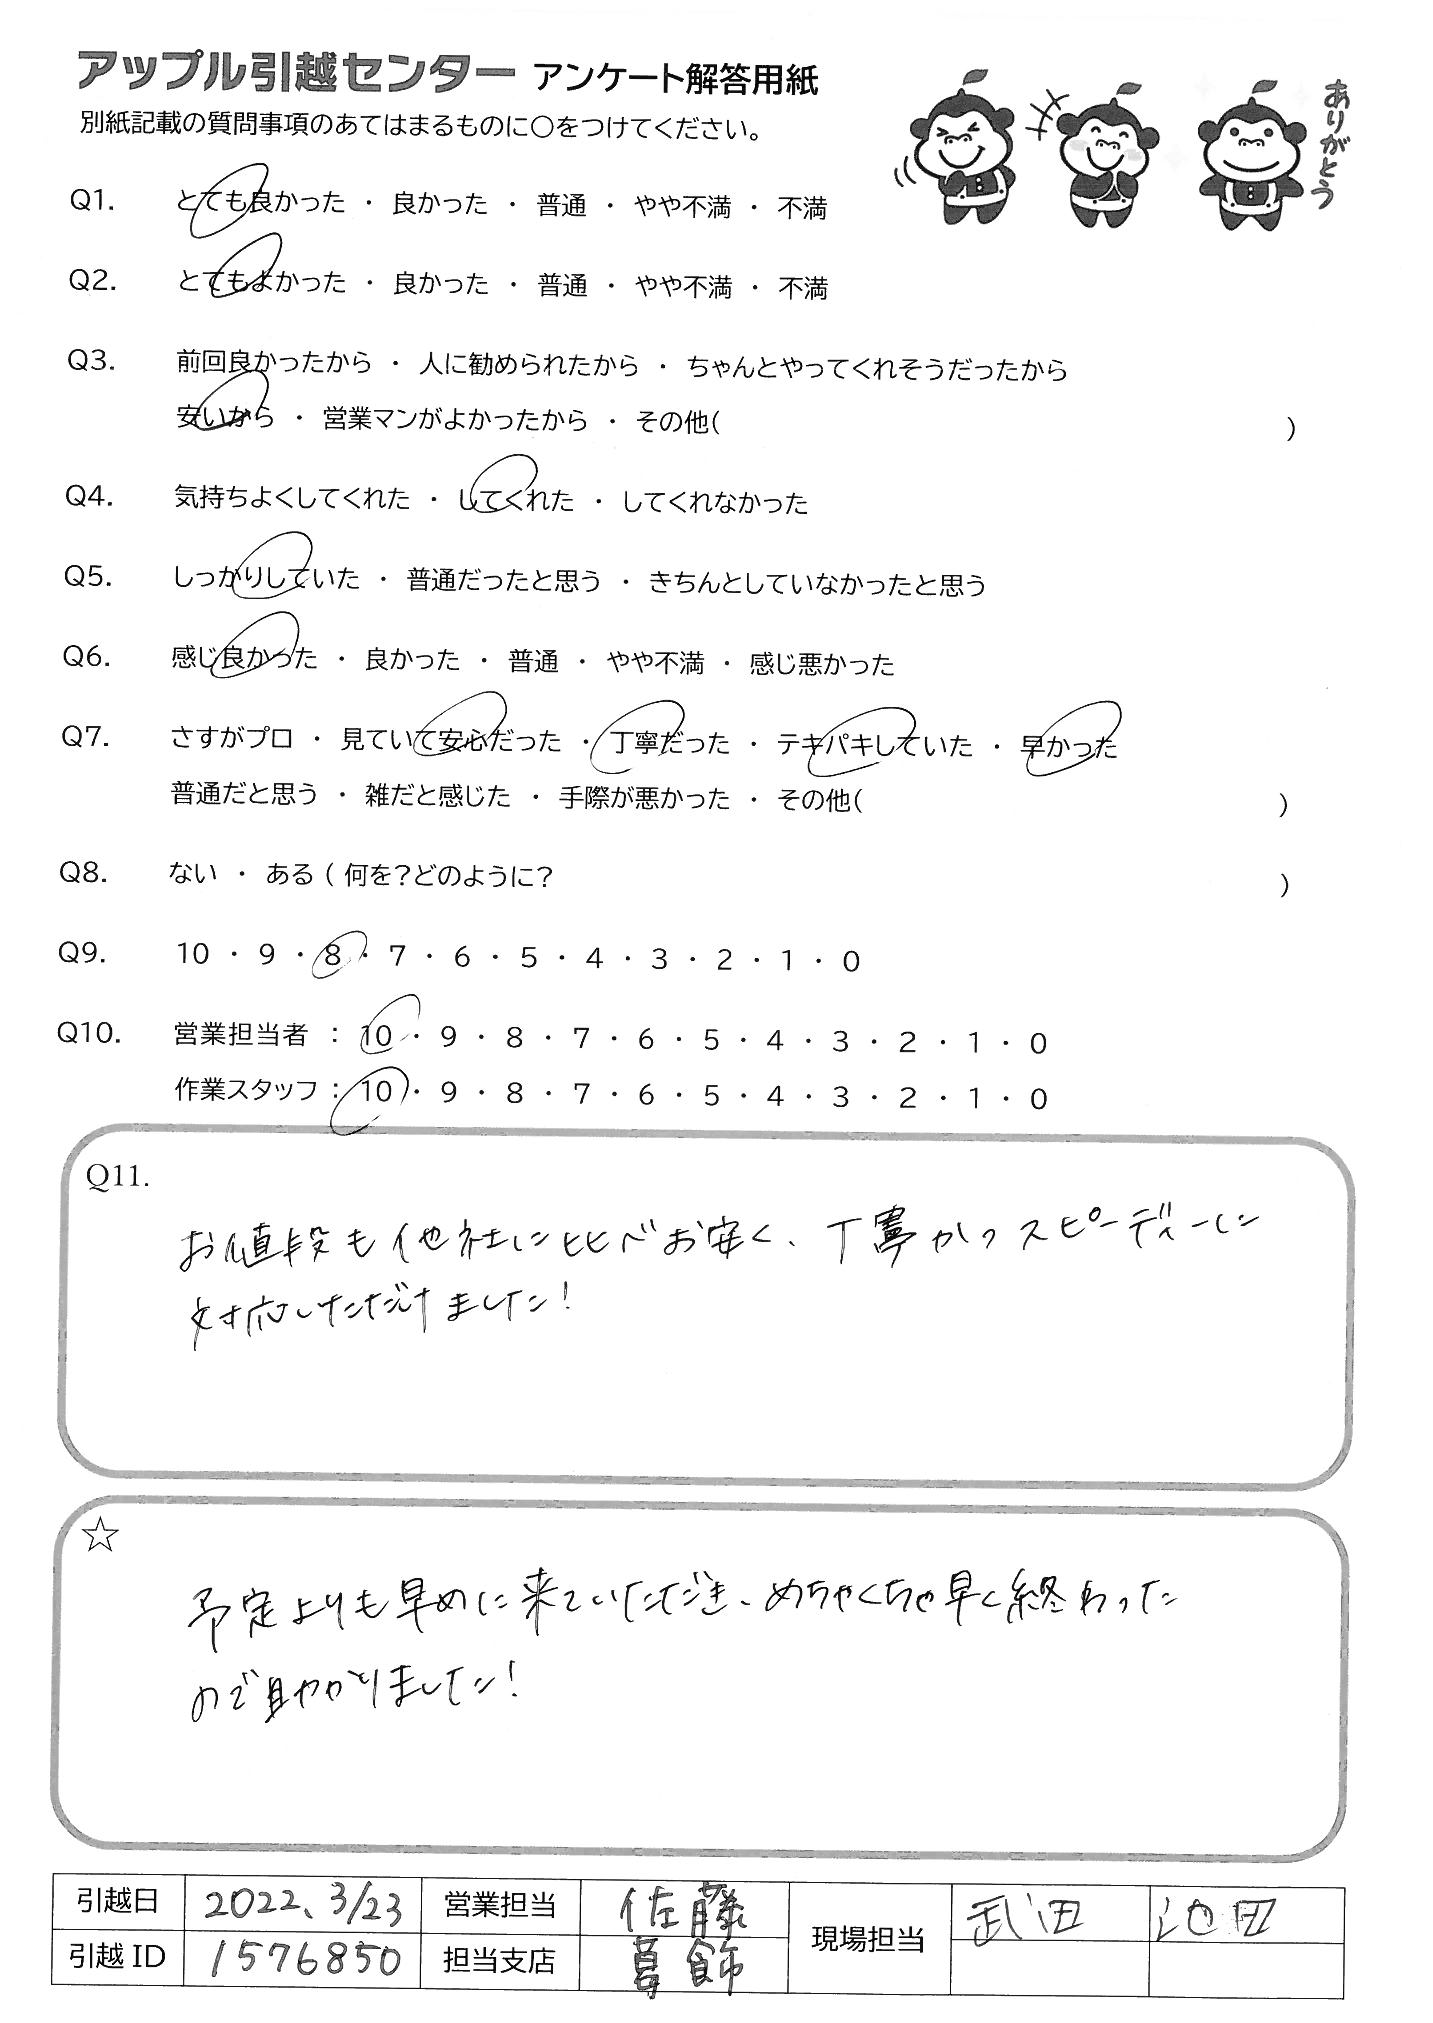 アップル引越センター アンケート解答用紙
別紙記載の質問事項のあてはまるものに○をつけてください。
ありがとう
Q1. とても良かった ・ 良かった ・ 普通 ・ やや不満 ・ 不満
Q2. とてもよかった ・ 良かった ・ 普通 ・ やや不満 ・ 不満
Q3. 前回良かったから ・ 人に勧められたから ・ ちゃんとやってくれそうだったから
安いから ・ 営業マンがよかったから ・ その他( )
Q4. 気持ちよくしてくれた ・ してくれた ・ してくれなかった
Q5. しっかりしていた ・ 普通だったと思う ・ きちんとしていなかったと思う
Q6. 感じ良かった ・ 良かった ・ 普通 ・ やや不満 ・ 感じ悪かった
Q7. さすがプロ ・ 見ていて安心だった ・ 丁寧だった ・ テキパキしていた ・ 早かった
普通だと思う ・ 雑だと感じた ・ 手際が悪かった ・ その他( )
Q8. ない ・ ある ( 何を？どのように？ )
Q9. 10 ・ 9 ・ 8 ・ 7 ・ 6 ・ 5 ・ 4 ・ 3 ・ 2 ・ 1 ・ 0
Q10. 営業担当者 : 10 ・ 9 ・ 8 ・ 7 ・ 6 ・ 5 ・ 4 ・ 3 ・ 2 ・ 1 ・ 0
作業スタッフ : 10 ・ 9 ・ 8 ・ 7 ・ 6 ・ 5 ・ 4 ・ 3 ・ 2 ・ 1 ・ 0
Q11.
お値段も他社に比べお安く、丁寧かつスピーディーに
対応いただけました！
☆
予定よりも早めに来ていただき、めちゃくちゃ早く終わった
ので助かりました！
引越日 2022、3/23 営業担当 佐藤 現場担当 武田 池田
引越ID 1576850 担当支店 葛飾